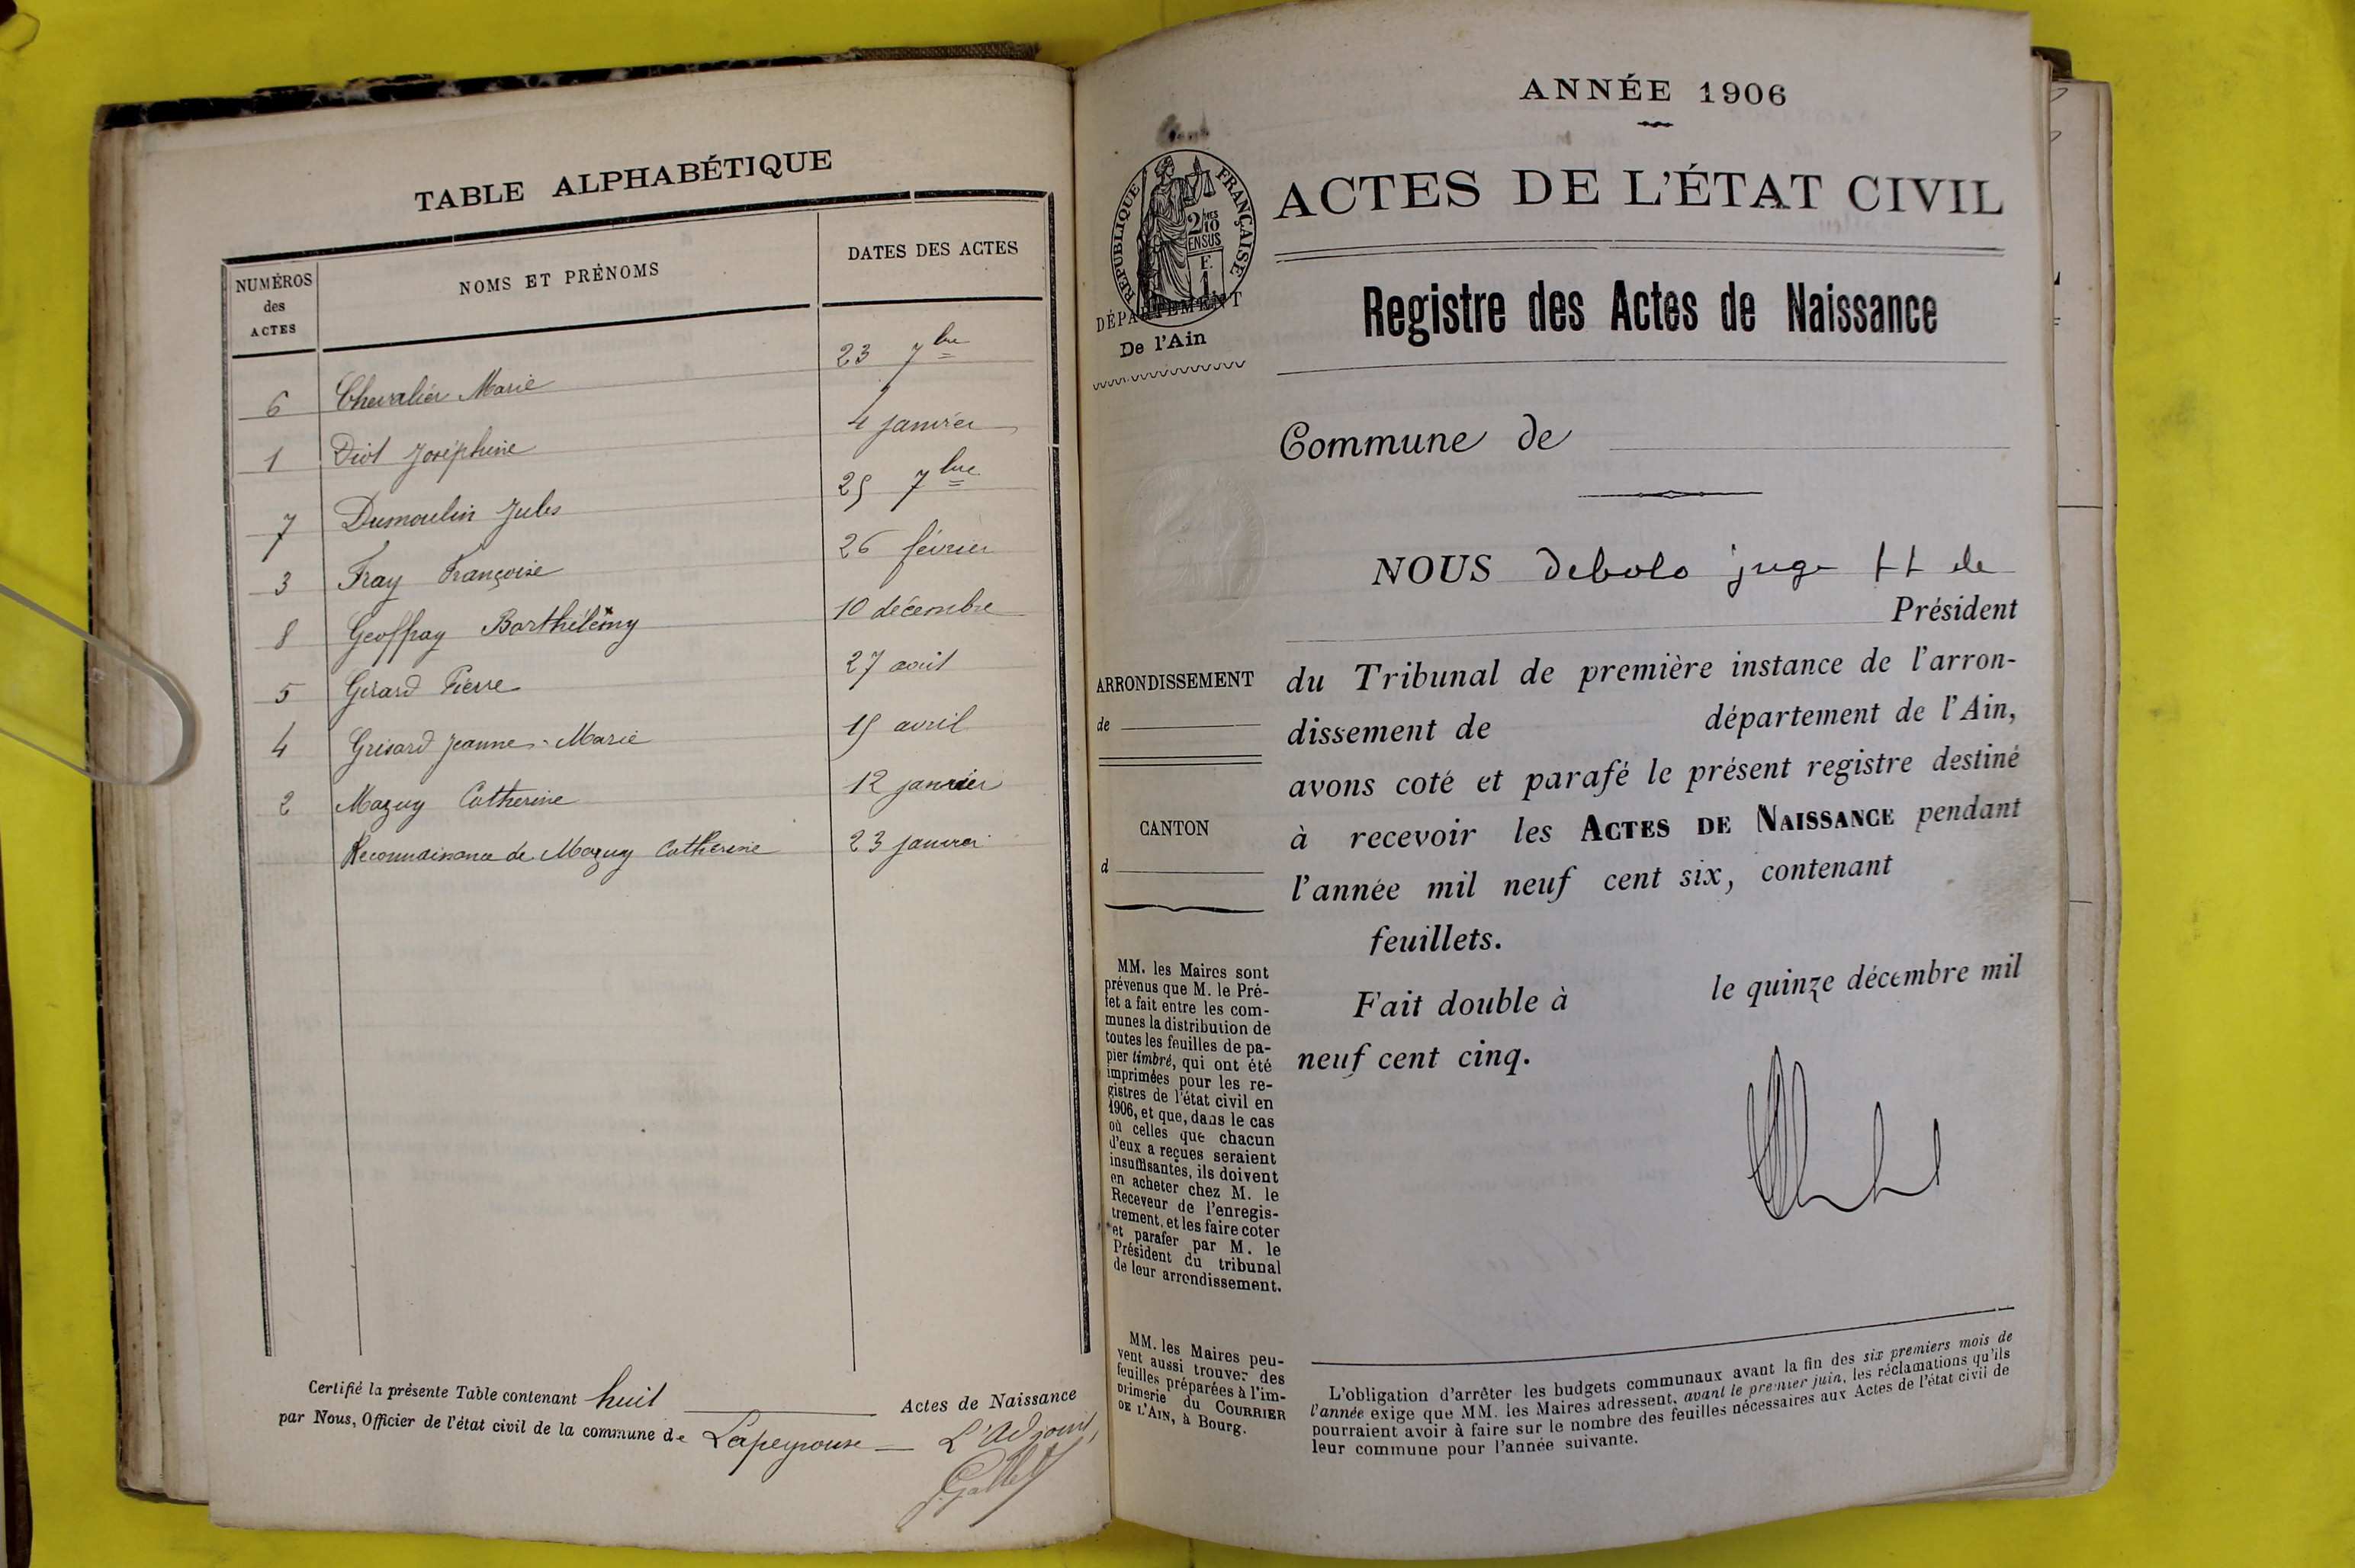 TABLE ALPHABÉTIQUE
NUMÉROS des ACTES
NOMS ET PRÉNOMS
DATES DES ACTES
6 Chevalier Marie 23 7bre
1 Diot Joséphine 4 janvier
7 Dumoulin Jules 25 7bre
3 Fray Françoise 26 février
8 Geoffray Barthélémy 10 décembre
5 Girard Pierre 27 août
4 Grisard Jeanne-Marie 15 avril
2 Mazuy Catherine 12 janvier
Reconnaissance de Mazuy Catherine 23 janvier
Certifié la présente Table contenant huit Actes de Naissance
par Nous, Officier de l'état civil de la commune de Lapeyrouse L'Adjoint,
ANNÉE 1906
ACTES DE L'ÉTAT CIVIL
RÉPUBLIQUE FRANÇAISE
2/10 EN SUS
F.
1
DÉPARTEMENT
De l'Ain
Registre des Actes de Naissance
Commune de
NOUS Debolo juge ff de
Président
ARRONDISSEMENT
de
CANTON
d
du Tribunal de première instance de l'arron-
dissement de département de l'Ain,
avons coté et parafé le présent registre destiné
à recevoir les ACTES DE NAISSANCE pendant
l'année mil neuf cent six, contenant
feuillets.
Fait double à le quinze décembre mil
neuf cent cinq.
MM. les Maires sont
prévenus que M. le Pré-
fet a fait entre les com-
munes la distribution de
toutes les feuilles de pa-
pier timbré, qui ont été
imprimées pour les re-
gistres de l'état civil en
1906, et que, dans le cas
où celles que chacun
d'eux a reçues seraient
insuffisantes, ils doivent
en acheter chez M. le
Receveur de l'enregis-
trement, et les faire coter
et parafer par M. le
Président du tribunal
de leur arrondissement.
MM. les Maires peu-
vent aussi trouver des
feuilles préparées à l'im-
primerie du COURRIER
DE L'AIN, à Bourg.
L'obligation d'arrêter les budgets communaux avant la fin des six premiers mois de
l'année exige que MM. les Maires adressent, avant le premier juin, les réclamations qu'ils
pourraient avoir à faire sur le nombre des feuilles nécessaires aux Actes de l'état civil de
leur commune pour l'année suivante.